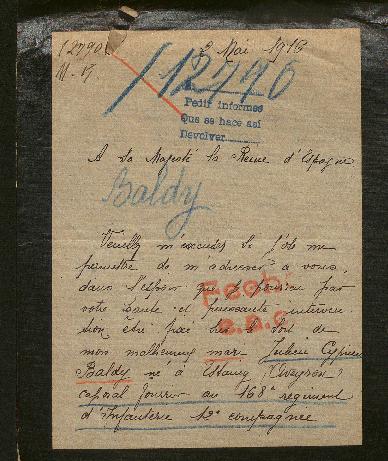 12790
M. P.
3 Mai 1916
12770
Pedir informes
Que se hace asi
Devolver
A Sa Majesté la Reine d'Espagne
Baldy
Veuillez m'excuser si j'ose me
permettre de m'adresser à vous,
dans l'espoir que je pourrai par
votre haute et puissante interven
tion être fixé sur le sort de
mon malheureux mari Julien Cyprien
Baldy né à Estaing (Aveyron)
caporal fourrier au 168e régiment
d'Infanterie 12e compagnie